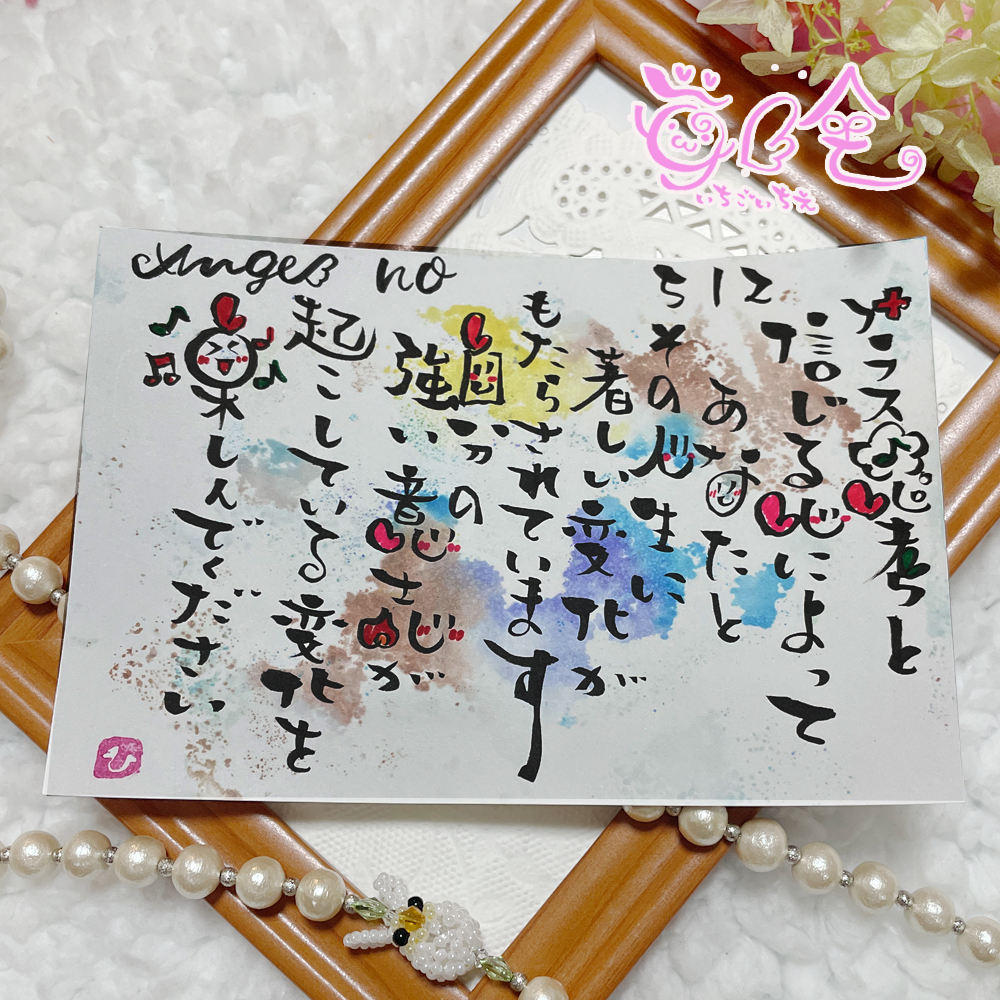 Angel no 512
プラス思考と
信じる心によって
あなたと
その人生に
著しい変化が
もたらされています
自分の
強い意志が
起こしている変化を
楽しんでください
ひ
いちごいちえ